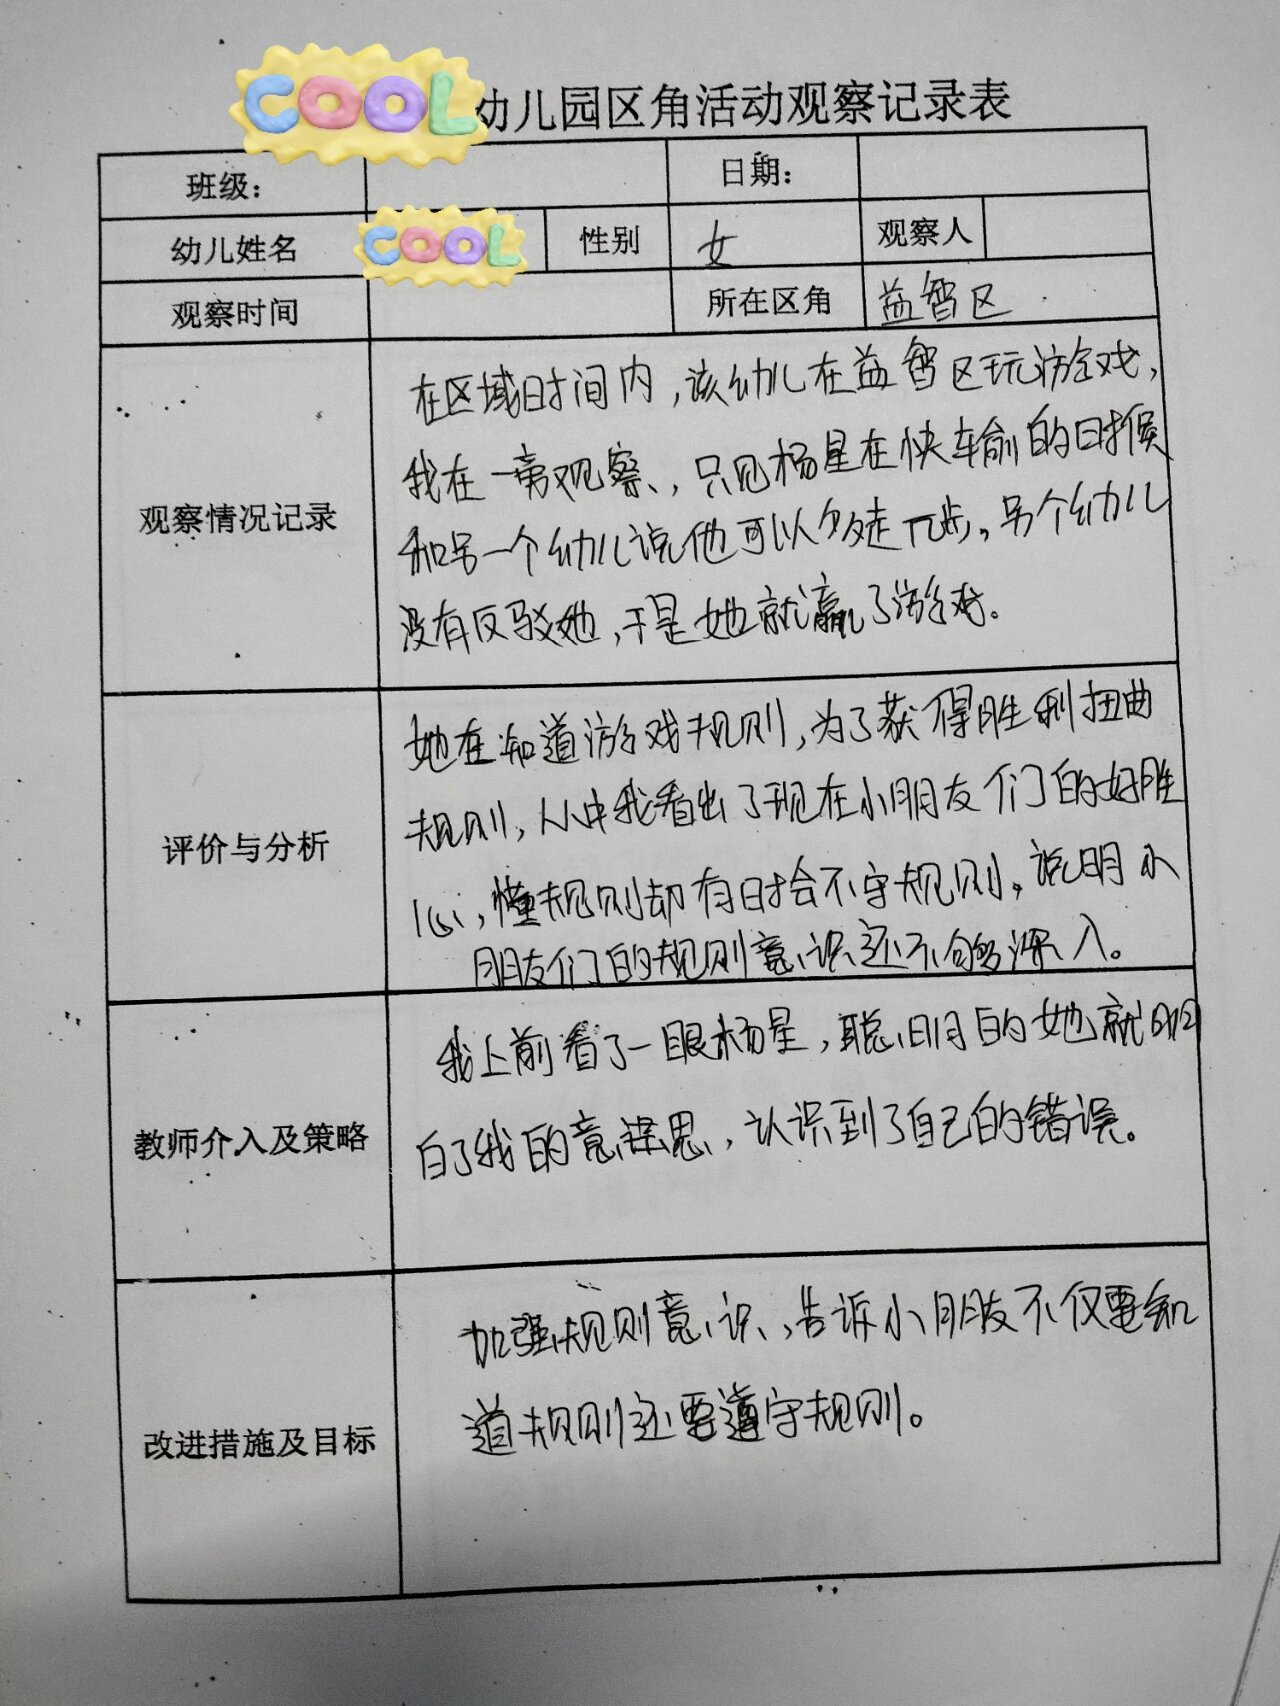 COOL 幼儿园区角活动观察记录表
班级： 日期：
幼儿姓名 COOL 性别 女 观察人
观察时间 所在区角 益智区
观察情况记录
在区域时间内，该幼儿在益智区玩游戏，
我在一旁观察，只见杨星在快车输的时候
和另一个幼儿说他可以多走几步。另个幼儿
没有反驳她，于是她就赢了游戏。
评价与分析
她在知道游戏规则，为了获得胜利扭曲
规则，从中我看出了现在小朋友们的好胜
心，懂规则却有时会不守规则。说明小
朋友们的规则意识还不够深入。
教师介入及策略
我上前看了一眼杨星，聪明的她就明
白了我的意思，认识到了自己的错误。
改进措施及目标
加强规则意识，告诉小朋友不仅要知
道规则还要遵守规则。